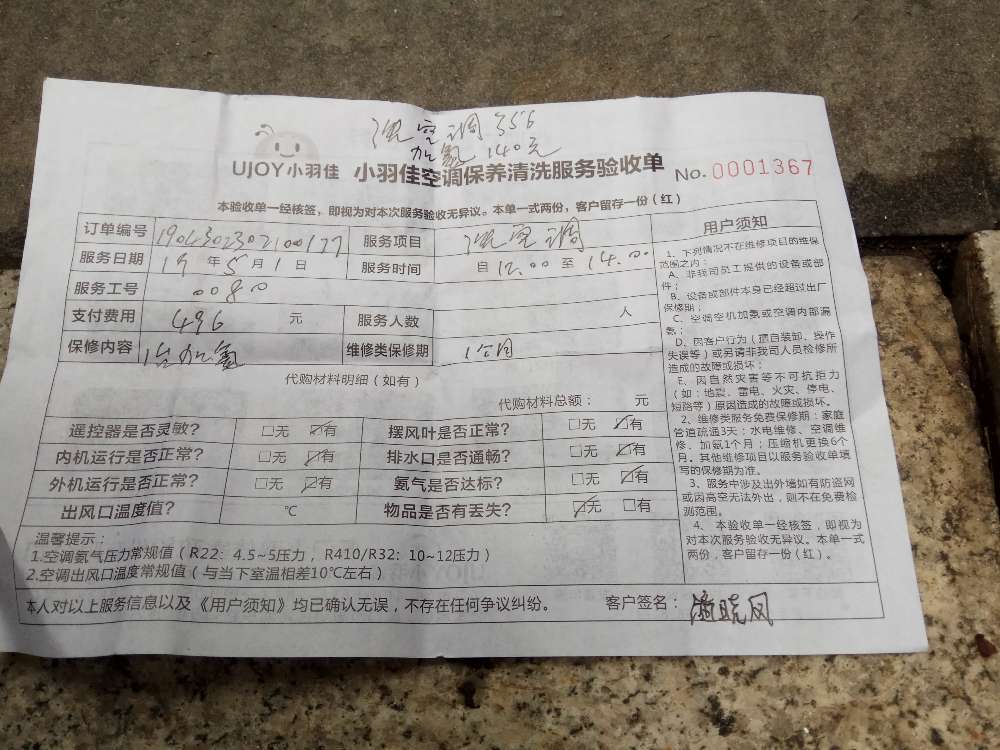 洗空调 356
加氨 140元
UJOY小羽佳 小羽佳空调保养清洗服务验收单 No. 0001367
本验收单一经核签，即视为对本次服务验收无异议。本单一式两份，客户留存一份（红）
订单编号 服务项目 洗空调
服务日期 19 年 5 月 1 日 服务时间 自 12.00 至 14.00
服务工号 00800
支付费用 496 元 服务人数 人
保修内容 加氨 维修类保修期 1个月
代购材料明细（如有）
代购材料总额： 元
遥控器是否灵敏？ □无 ☑有 摆风叶是否正常？ □无 ☑有
内机运行是否正常？ □无 ☑有 排水口是否通畅？ □无 ☑有
外机运行是否正常？ □无 ☑有 氨气是否达标？ □无 ☑有
出风口温度值？ ℃ 物品是否有丢失？ ☑无 □有
温馨提示：
1.空调氨气压力常规值（R22：4.5~5压力，R410/R32：10~12压力）
2.空调出风口温度常规值（与当下室温相差10℃左右）
本人对以上服务信息以及《用户须知》均已确认无误，不存在任何争议纠纷。 客户签名：潘晓凤
用户须知
1、下列情况不在维修项目的维保
范围之内：
A、非我司员工提供的设备或部
件；
B、设备或部件本身已经超过出厂
保修期；
C、空调空机加氨或空调内部漏
氨；
D、因客户行为（擅自装卸、操作
失误等）或另请非我司人员检修所
造成的故障或损坏；
E、因自然灾害等不可抗拒力
（如：地裂、雷电、火灾、停电、
短路等）原因造成的故障或损坏。
2、维修类服务免费保修期：家庭
管道疏通3天；水电维修、空调维
修、加氨1个月；压缩机更换6个
月。其他维修项目以服务验收单填
写的保修期为准。
3、服务中涉及出外墙如有防盗网
或因高空无法外出，则不在免费检
测范围。
4、本验收单一经核签，即视为
对本次服务验收无异议。本单一式
两份，客户留存一份（红）。